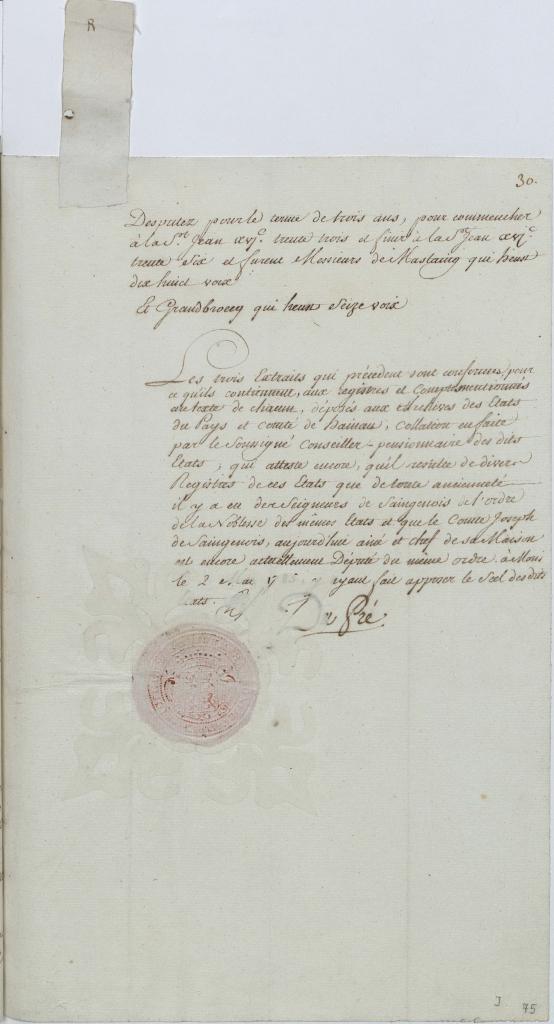 R
30.
Desputez pour le terme de trois ans, pour commencher
à la St. Jean xvjc. trente trois et finir à la St. Jean xvjc.
trente six et furent Messieurs de Mastaing qui heust
dix huict voix
Et Grandbrocq qui heust seize voix
Les trois Extraits qui précedent sont conformes, pour
ce qu'ils contiennent, aux registres et Comptes mentionnés
au texte de chacun, déposés aux archives des Etats
du Pays et comté de Hainau, collation en faite
par le Souvigné Conseiller-pensionnaire des dits
Etats, qui atteste encore, qu'il resulte de divers
Registres de ces Etats que de toute ancienneté
il y a eu des Seigneurs de Saingenois de l'ordre
de la Noblesse des mêmes Etats et que le Comte Joseph
de Saingenois, aujourd'hui ainé et chef de sa Maison
est encore actuellement Député du même ordre. à Mons
le 2 y ayant fait apposer le Scel des dits
Etats.
Du Pré.
J 75